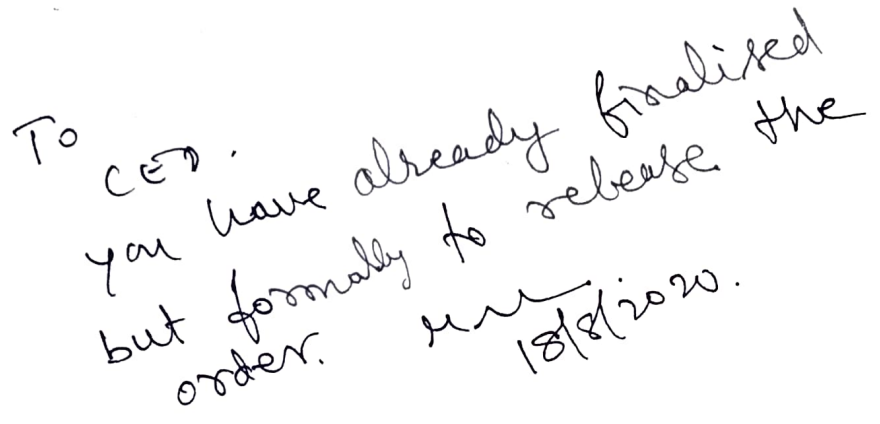 To
CED.
you have already finalised
but formally to release the
order.
18/8/2020.